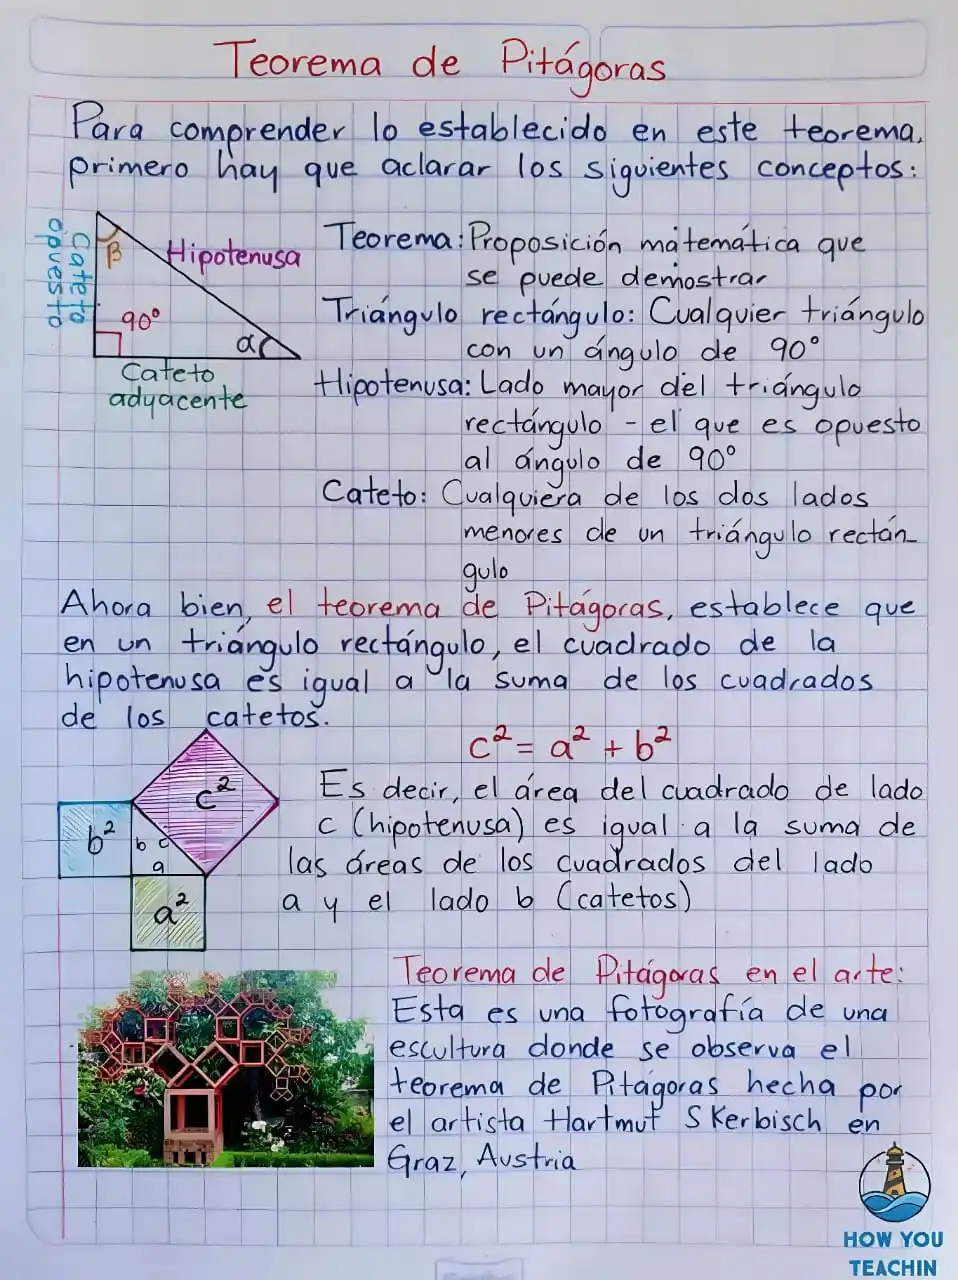 Teorema de Pitágoras
Para comprender lo establecido en este teorema,
primero hay que aclarar los siguientes conceptos:
Cateto
opuesto
β
Hipotenusa
90°
α
Cateto
adyacente
Teorema: Proposición matemática que
se puede demostrar
Triángulo rectángulo: Cualquier triángulo
con un ángulo de 90°
Hipotenusa: Lado mayor del triángulo
rectángulo - el que es opuesto
al ángulo de 90°
Cateto: Cualquiera de los dos lados
menores de un triángulo rectán_
gulo
Ahora bien, el teorema de Pitágoras, establece que
en un triángulo rectángulo, el cuadrado de la
hipotenusa es igual a la suma de los cuadrados
de los catetos.
c² = a² + b²
c²
b²
b c
a
a²
Es decir, el área del cuadrado de lado
c (hipotenusa) es igual a la suma de
las áreas de los cuadrados del lado
a y el lado b (catetos)
Teorema de Pitágoras en el arte:
Esta es una fotografía de una
escultura donde se observa el
teorema de Pitágoras hecha por
el artista Hartmut Skerbisch en
Graz, Austria
HOW YOU
TEACHIN